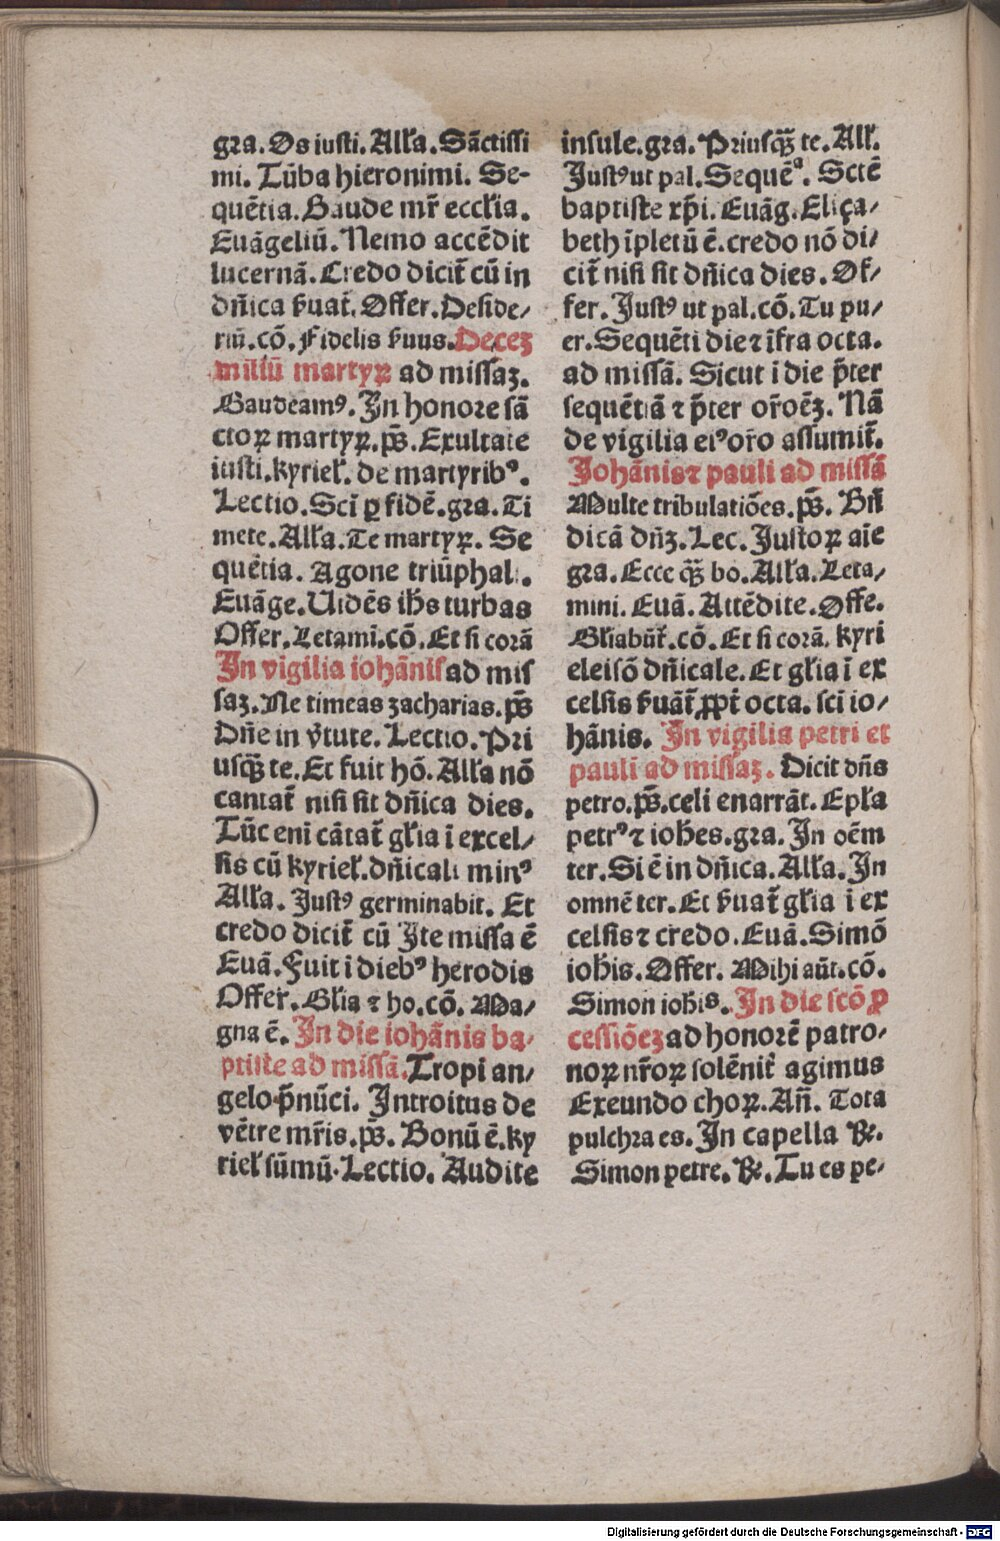 gra. Os iusti. Alľa. Sāctissi
mi. Tūba hieronimi. Se-
quētia. Gaude mr̄ ecclīa.
Euāgeliū. Nemo accēdit
lucernā. Credo dicit̄ cū in
dn̄ica ẜuat̄. Offer. Deside/
riū. cō. Fidelis ẜuus. Decez
milliū martyꝝ ad missaz.
Gaudeamꝰ. In honore sā
ctoꝝ martyꝝ. ps̄. Exultate
iusti. kyrieł. de martyribꝰ.
Lectio. Sci ꝑ fidē. gra. Ti
mete. Alľa. Te martyꝝ. Se
quētia. Agone triūphal.
Euāge. Uidēs ih̄s turbas
Offer. Letami. cō. Et si corā
In vigilia iohānis ad mis
saz. Ne timeas zacharias. ps̄
Dn̄e in v̄tute. Lectio. Pri
usꝙ̄ te. Et fuit hō. Alľa nō
cantat̄ nisi sit dn̄ica dies.
Tūc eni cātat̄ glīa ī excel/
sis cū kyrieł. dn̄icali minꝰ
Alľa. Justꝰ germinabit. Et
credo dicit̄ cū Ite missa ē
Euā. Fuit i diebꝰ herodis
Offer. Glīa ⁊ ho. cō. Ma/
gna ē. In die iohānis ba/
ptiste ad missā. Tropi an/
gelo p̄nūci. Introitus de
vētre mr̄is. ps̄. Bonū ē. ky
rieł sūmū. Lectio. Audite
insule. gra. Priusꝙ̄ te. Alľ.
Justꝰ ut pal. Sequēᵃ. Sctē
baptiste xp̄i. Euāg. Eliça/
beth īpletū ē. credo nō di/
cit̄ nisi sit dn̄ica dies. Of/
fer. Justꝰ ut pal. cō. Tu pu/
er. Sequēti die ⁊ īfra octa.
ad missā. Sicut i die p̄ter
sequētiā ⁊ p̄ter or̄oēz. Nā
de vigilia eiꝰ or̄o assumit̄.
Iohānis ⁊ pauli ad missā
Multe tribulatiōes. ps̄. Bn̄
dicā dn̄z. Lec. Justoꝝ aīe
gra. Ecce ꝙ̄ bo. Alľa. Leta/
mini. Euā. Attēdite. Offe.
Glīabūt̄. cō. Et si corā. kyri
eleisō dn̄icale. Et glīa ī ex
celsis ẜuāt̄ ꝓpt̄ octa. sci io/
hānis. In vigilia petri et
pauli ad missaz. Dicit dn̄s
petro. ps̄. celi enarrāt. Epľa
petrꝰ ⁊ ioh̄es. gra. In oēm
ter. Si ē in dn̄ica. Alľa. In
omnē ter. Et ẜuat̄ glīa ī ex
celsis ⁊ credo. Euā. Simō
ioh̄is. Offer. Mihi aūt. cō.
Simon ioh̄is. In die scō ꝓ
cessiōez ad honorē patro/
noꝝ nr̄oꝝ solēnit̄ agimus
Exeundo choꝝ. An̄. Tota
pulchra es. In capella ℣.
Simon petre. ℣. Tu es pe/
Digitalisierung gefördert durch die Deutsche Forschungsgemeinschaft - DFG